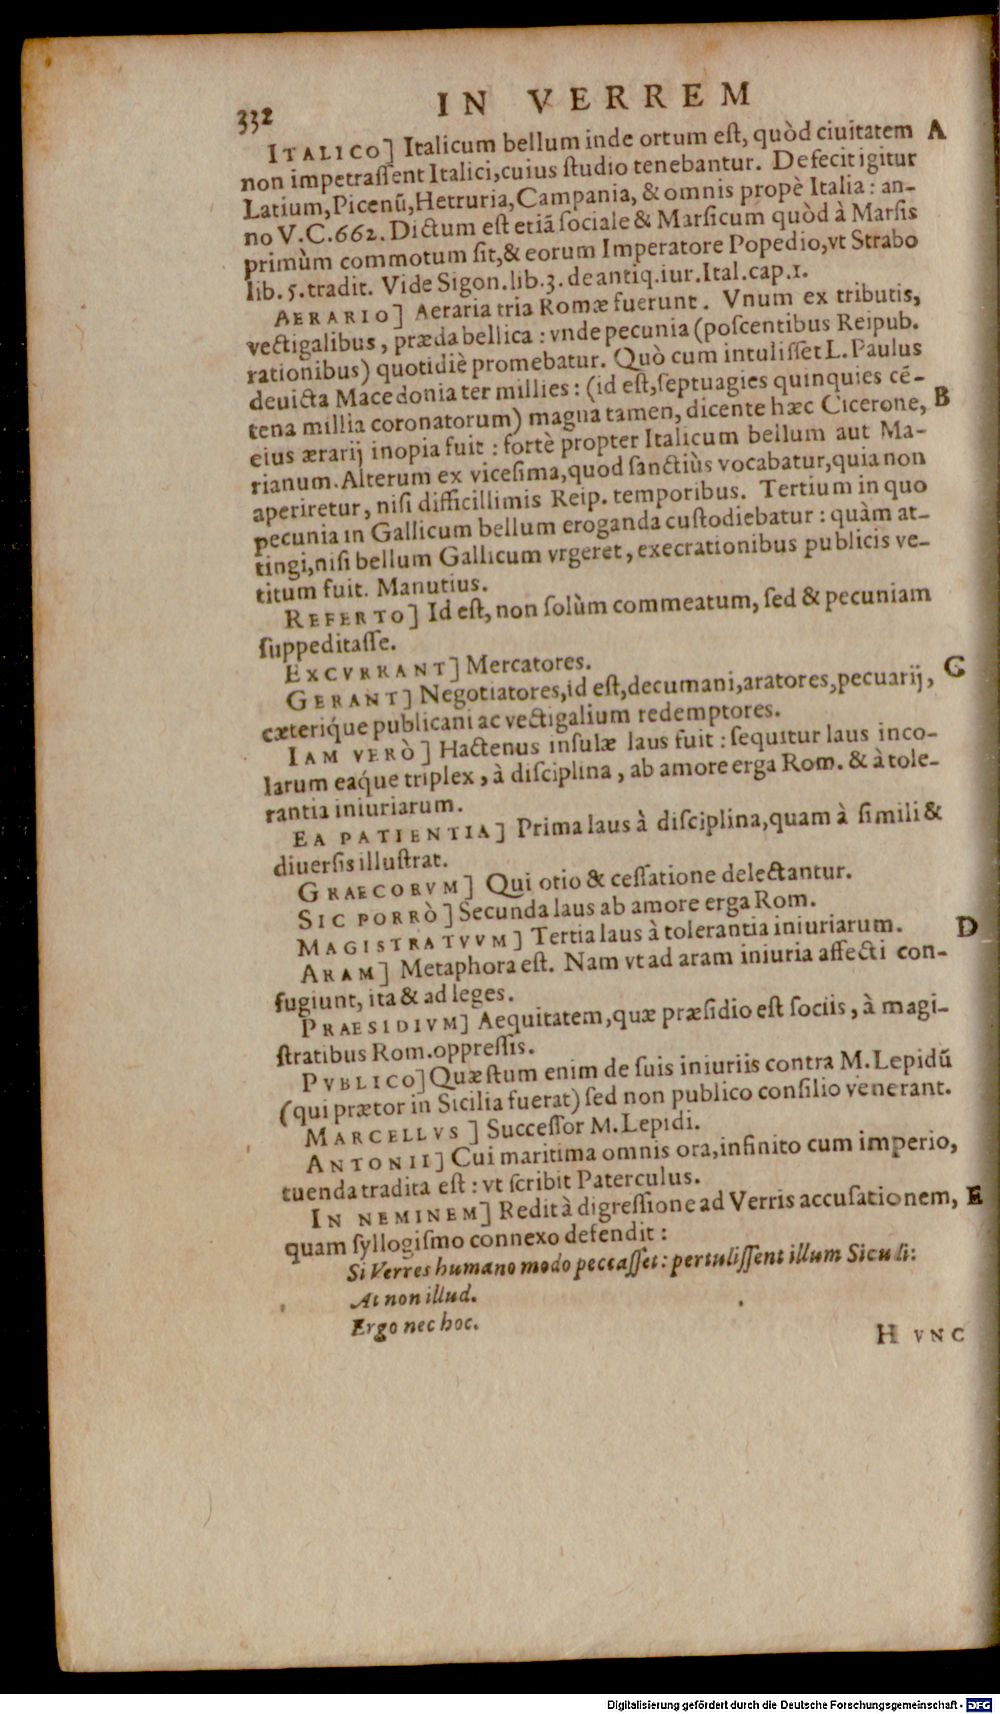 332 IN VERREM
ITALICO] Italicum bellum inde ortum est, quòd ciuitatem A
non impetrassent Italici, cuius studio tenebantur. Defecit igitur
Latium, Picenũ, Hetruria, Campania, & omnis propè Italia: an-
no V.C.662. Dictum est etiã sociale & Marsicum quòd à Marsis
primùm commotum sit, & eorum Imperatore Popedio, vt Strabo
lib. 5. tradit. Vide Sigon. lib. 3. de antiq. iur. Ital. cap. 1.
AERARIO] Aeraria tria Romæ fuerunt. Vnum ex tributis,
vectigalibus, præda bellica: vnde pecunia (poscentibus Reipub.
rationibus) quotidiè promebatur. Quò cum intulisset L. Paulus
deuicta Macedonia ter millies: (id est, septuagies quinquies cẽ-
tena millia coronatorum) magna tamen, dicente hæc Cicerone, B
eius ærarij inopia fuit: fortè propter Italicum bellum aut Ma-
rianum. Alterum ex vicesima, quod sanctiùs vocabatur, quia non
aperiretur, nisi difficillimis Reip. temporibus. Tertium in quo
pecunia in Gallicum bellum eroganda custodiebatur: quàm at-
tingi, nisi bellum Gallicum vrgeret, execrationibus publicis ve-
titum fuit. Manutius.
REFERTO] Id est, non solùm commeatum, sed & pecuniam
suppeditasse.
EXCVRRANT] Mercatores.
GERANT] Negotiatores, id est, decumani, aratores, pecuarij, C
cæteriq́ue publicani ac vectigalium redemptores.
IAM VERÒ] Hactenus insulæ laus fuit: sequitur laus inco-
larum eaq́ue triplex, à disciplina, ab amore erga Rom. & à tole-
rantia iniuriarum.
EA PATIENTIA] Prima laus à disciplina, quam à simili &
diuersis illustrat.
GRAECORVM] Qui otio & cessatione delectantur.
SIC PORRÒ] Secunda laus ab amore erga Rom.
MAGISTRATVVM] Tertia laus à tolerantia iniuriarum. D
ARAM] Metaphora est. Nam vt ad aram iniuria affecti con-
fugiunt, ita & ad leges.
PRAESIDIVM] Aequitatem, quæ præsidio est sociis, à magi-
stratibus Rom. oppressis.
PVBLICO] Quæstum enim de suis iniuriis contra M. Lepidũ
(qui prætor in Sicilia fuerat) sed non publico consilio venerant.
MARCELLVS] Successor M. Lepidi.
ANTONII] Cui maritima omnis ora, infinito cum imperio,
tuenda tradita est: vt scribit Paterculus.
IN NEMINEM] Redit à digressione ad Verris accusationem, E
quam syllogismo connexo defendit:
Si Verres humano modo peccasset: pertulissent illum Siculi:
At non illud.
Ergo nec hoc.
HVNC
Digitalisierung gefördert durch die Deutsche Forschungsgemeinschaft - DFG